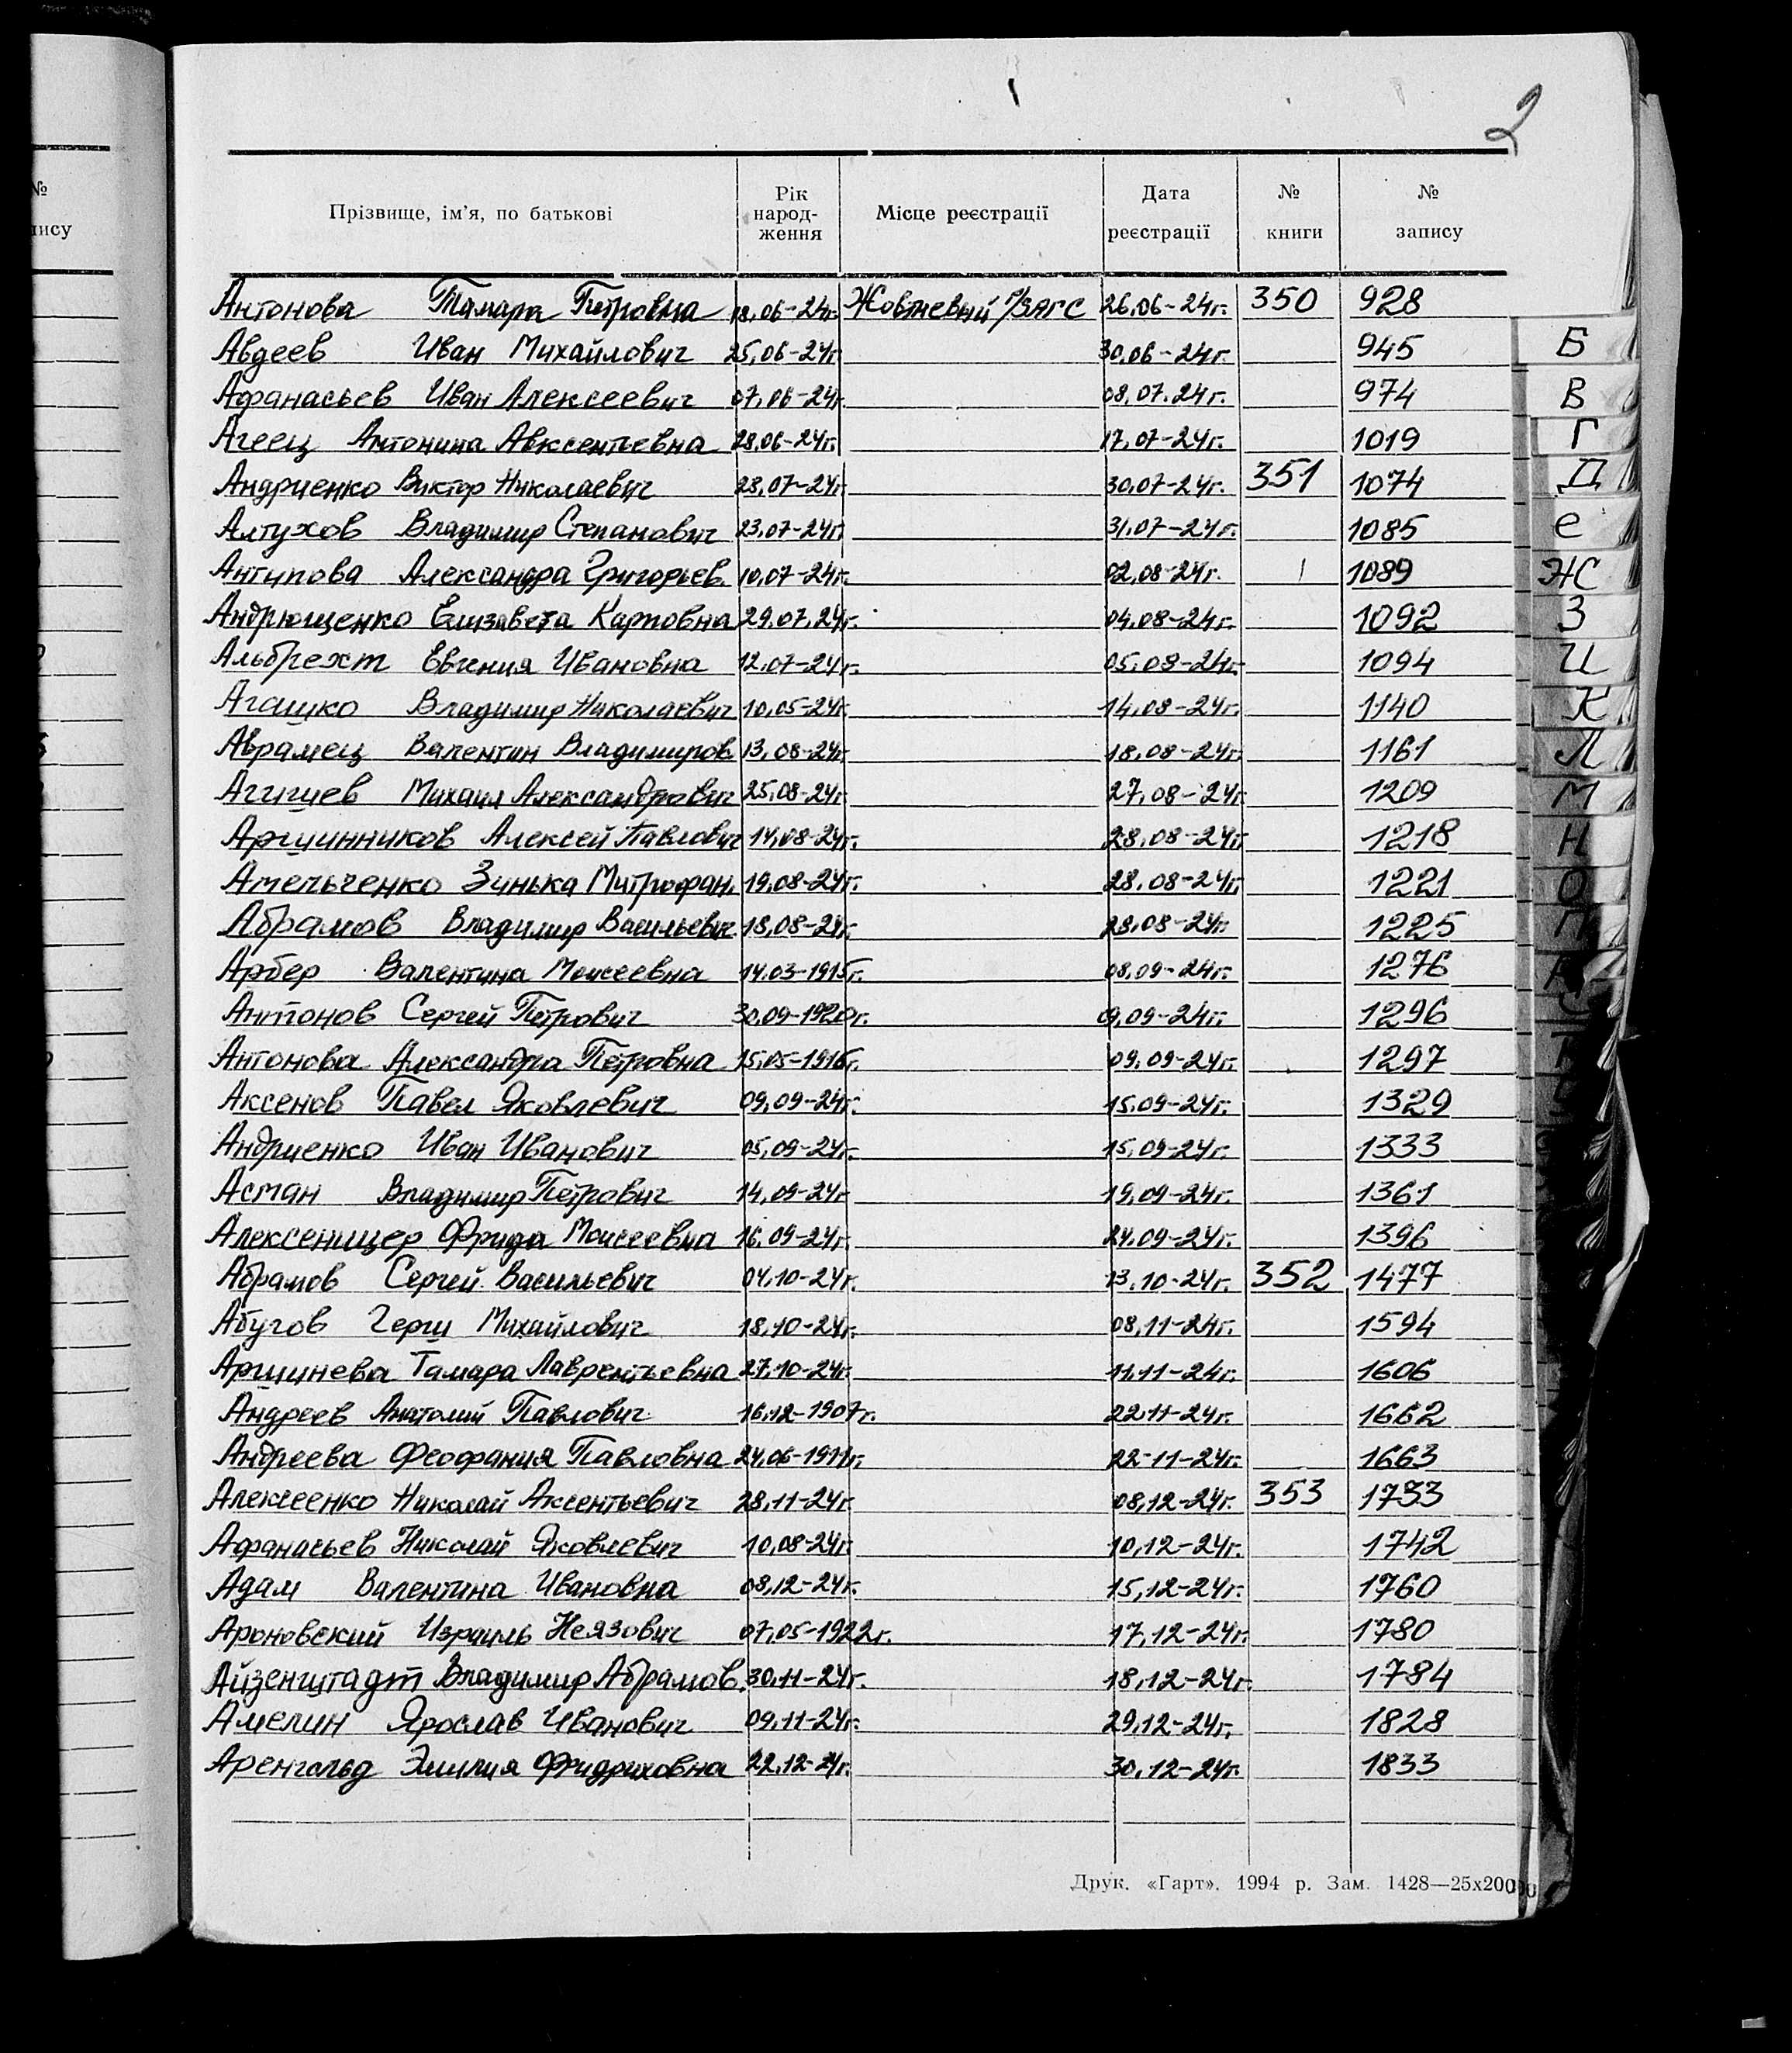 2
Прізвище, ім'я, по батькові Рік народ- ження Місце реєстрації Дата реєстрації № книги № запису
Антонова Тамара Петровна 18.06-24г. Жовтневый р/ЗАГС 26.06-24г. 350 928
Авдеев Иван Михайлович 25.06-24г. 30.06-24г. 945
Афанасьев Иван Алексеевич 07.06-24г. 08.07.24г. 974
Агеец Антонина Авксентьевна 28.06-24г. 17.07-24г. 1019
Андриенко Виктор Николаевич 23.07-24г. 30.07-24г. 351 1074
Алтухов Владимир Степанович 23.07-24г. 31.07-24г. 1085
Антипова Александра Григорьев. 10.07-24г. 02.08-24г. 1089
Андрющенко Елизавета Карповна 29.07.24г. 04.08-24г. 1092
Альбрехт Евгения Ивановна 12.07-24г. 05.08-24г. 1094
Агашко Владимир Николаевич 10.05-24г. 14.08-24г. 1140
Аврамец Валентин Владимиров. 13.08-24г. 18.08-24г. 1161
Агишев Михаил Александрович 25.08-24г. 27.08-24г 1209
Аршинников Алексей Павлович 14.08-24г. 28.08-24г 1218
Амельченко Зинька Митрофан. 19.08-24г. 28.08-24г. 1221
Абрамов Владимир Васильевич 18.08-24г. 28.08-24г. 1225
Арбер Валентина Моисеевна 14.03-1915г. 08.09-24г. 1276
Антонов Сергей Петрович 30.09-1920г. 09.09-24г. 1296
Антонова Александра Петровна 15.05-1916г. 09.09-24г. 1297
Аксенов Павел Яковлевич 09.09-24г. 15.09-24г. 1329
Андриенко Иван Иванович 05.09-24г. 15.09-24г. 1333
Асман Владимир Петрович 14.09-24г 19.09-24г. 1361
Алексеницер Фрида Моисеевна 16.09-24г. 24.09-24г. 1396
Абрамов Сергей Васильевич 04.10-24г. 13.10-24г. 352 1477
Абугов Герш Михайлович 18.10-24г. 08.11-24г. 1594
Аршинева Тамара Лаврентьевна 27.10-24г. 11.11-24г. 1606
Андреев Анатолий Павлович 16.12-1907г. 22.11-24г. 1662
Андреева Феофания Павловна 24.06-1911г. 22-11-24г. 1663
Алексеенко Николай Аксентьевич 28.11-24г. 08.12-24г. 353 1733
Афанасьев Николай Яковлевич 10.08-24г. 10.12-24г. 1742
Адам Валентина Ивановна 08.12-24г. 15.12-24г. 1760
Ароновский Израиль 07.05-1922г. 17.12-24г. 1780
Айзенштадт Владимир Абрамов. 30.11-24г. 18.12-24г. 1784
Амелин Ярослав Иванович 09.11-24г. 29.12-24г. 1828
Аренгольд Эмилия Фридриховна 22.12-24г. 30.12-24г. 1833
Друк. «Гарт». 1994 р. Зам. 1428—25х20000
№
пису
Б
В
Г
Д
Е
Ж
З
И
К
Л
М
Н
О
П
Р
С
Т